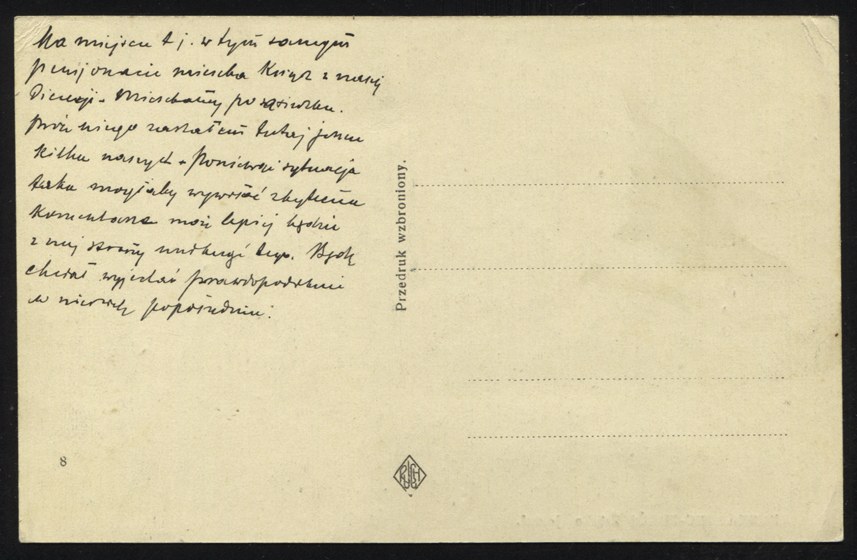 Na miejscu t j. w tym samym
pensjonacie mieszka Ksiądz z naszej
Diecezji - Mieszkamy po sąsiedzku.
Próc niego zastałem tutaj jeszcze
kilku naszych - Ponieważ sytuacja
taka mogłaby wywołać zbyteczne
komentarze może lepiej będzie
z mej strony
chciał wyjechać prawdopodobnie
w niedzielę popołudniu.
Przedruk wzbroniony.
8